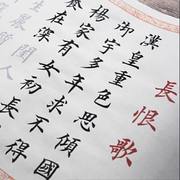 長恨歌
漢皇重色思傾國
御宇多年求不得
楊家有女初長
養在深閨人